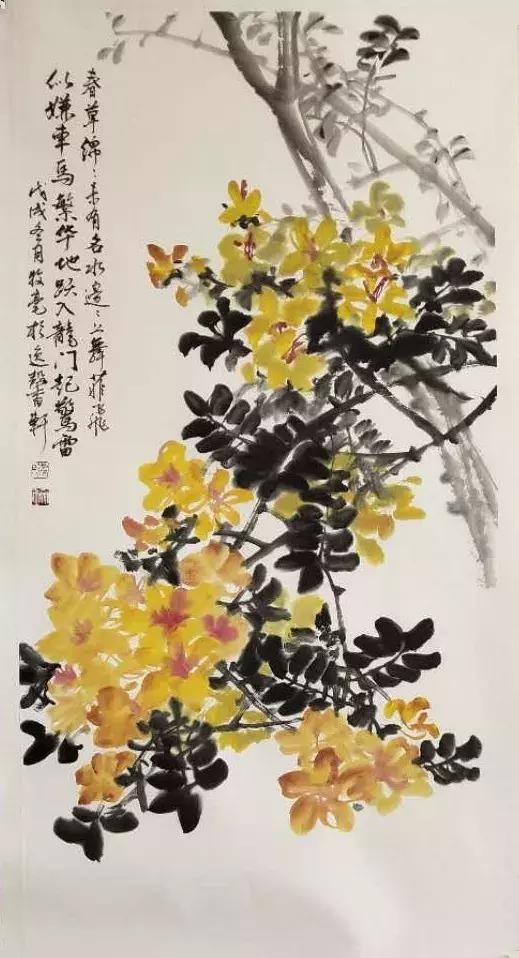 春草綿〻未有名水邊〻上舞菲飛
似嫌車馬繁华地跃入龍门起驚雷
戊戌冬月牧毫於逸馨軒